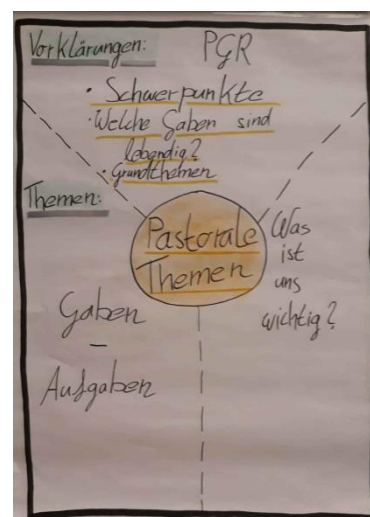 Vorklärungen: PGR
· Schwerpunkte
· Welche Gaben sind
lebendig?
· Grundthemen
Themen:
Pastorale
Themen
Was
ist
uns
wichtig?
Gaben
–
Aufgaben